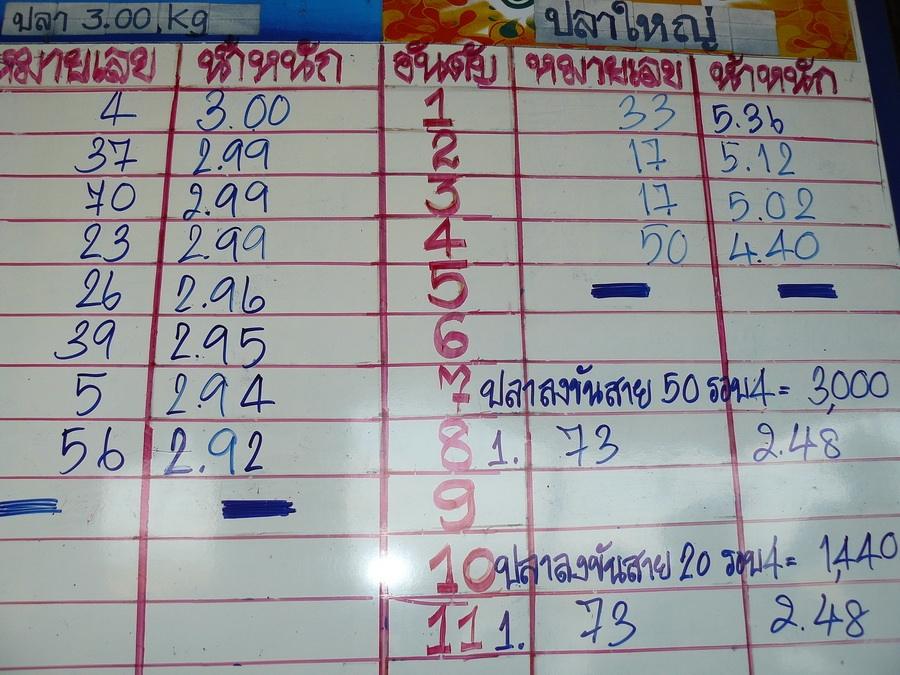 ปลา 3.00 Kg ปลาใหญ่
หมายเลข น้ำหนัก อันดับ หมายเลข น้ำหนัก
4 3.00 1 33 5.36
37 2.99 2 17 5.12
70 2.99 3 17 5.02
23 2.99 4 50 4.40
26 2.96 5
39 2.95 6
5 2.94 7 ปลาลงขันสาย 50 รอบ4 = 3,000
56 2.92 8 1. 73 2.48
9
10 ปลาลงขันสาย 20 รอบ4 = 1,440
11 1. 73 2.48